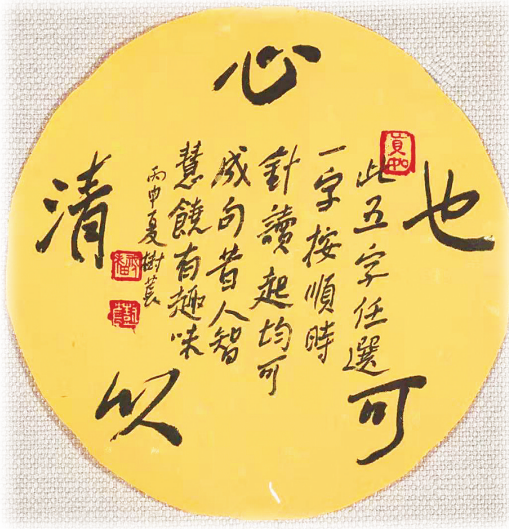 心也可以清
此五字任選
一字按順時
針讀起均可
成句昔人智
慧饒有趣味
丙申夏樹蓂